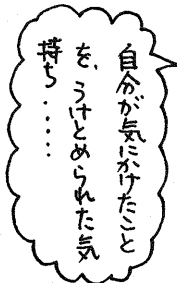 自分が気にかけたこと
を、うけとめられた気
持ち・・・・